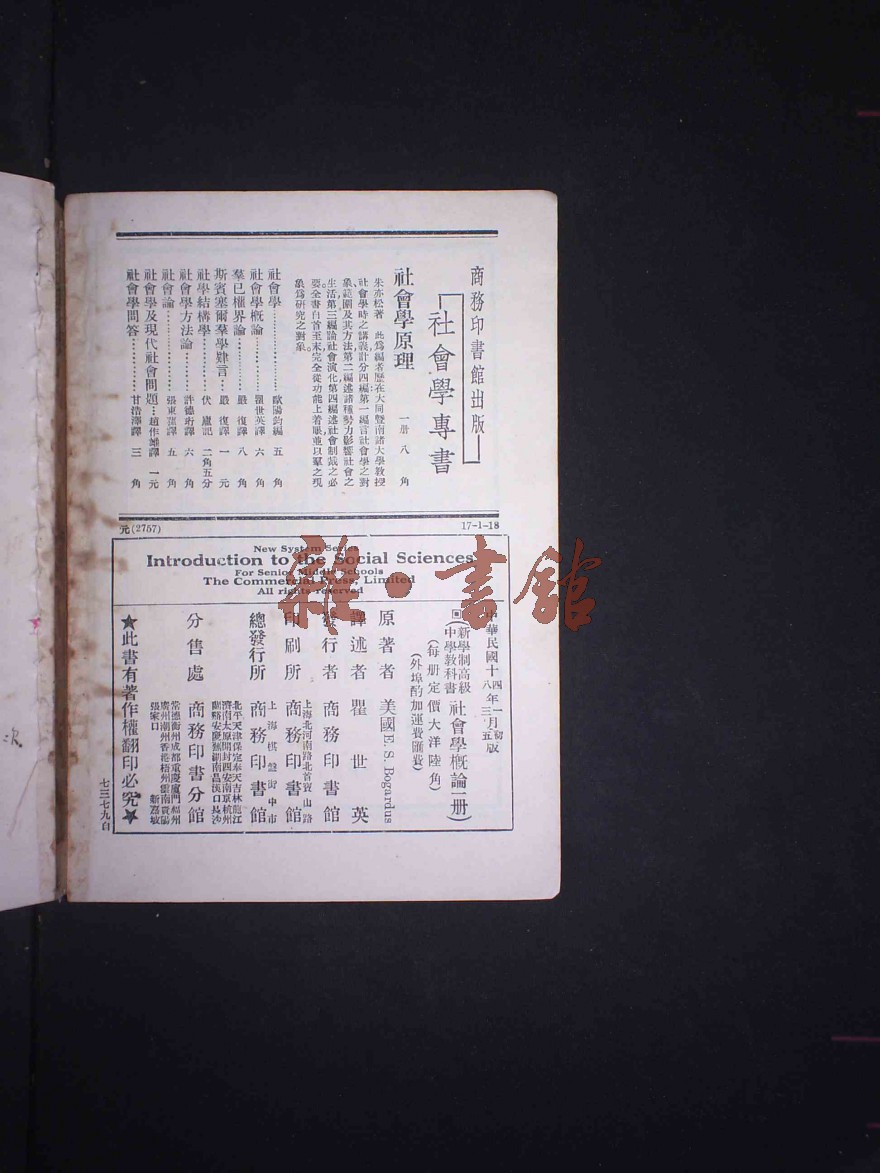 商務印書館出版
社會學專書
社會學原理
一册 八角
朱亦松著 此爲編者歷在大同暨南諸大學教授
社會學時之講義計分四編第一編言社會學之對
象範圍及其方法第二編述諸種勢力影響社會之
生活第三編論社會演化第四編述社會制裁之必
要全書自首至末完全從功能上着眼並以羣之現
象爲研究之對象。
社會學 歐陽鈞編 五角
社會學概論 瞿世英譯 六角
羣己權界論 嚴復譯 八角
斯賓塞爾羣學肄言 嚴復譯 一元
社學結構學 伏廬記 二角五分
社會學方法論 許德珩譯 六角
社會論 張東蓀譯 五角
社會學及現代社會問題 趙作雄譯 一元
社會學問答 甘浩澤譯 三角
元(2757)
17-1-18
New System Series
Introduction to the Social Sciences
For Senior Middle Schools
The Commercial Press, Limited
All rights reserved
中華民國十四年一月初版
八年三月五
新學制高級
中學教科書
社會學概論一册
(每册定價大洋陸角)
(外埠酌加運費匯費)
原著者 美國E. S. Bogardus
譯述者 瞿世英
發行者 商務印書館
印刷所 上海北河南路北首寶山路
商務印書館
總發行所 上海棋盤街中市
商務印書館
分售處 商務印書分館
北平天津保定奉天吉林龍江
濟南太原開封西安南京杭州
蘭谿安慶蕪湖南昌漢口長沙
常德衡州成都重慶廈門福州
廣州潮州香港梧州雲南貴陽
張家口 新嘉坡
★此書有著作權翻印必究★
七三七九自
雜·書館
次